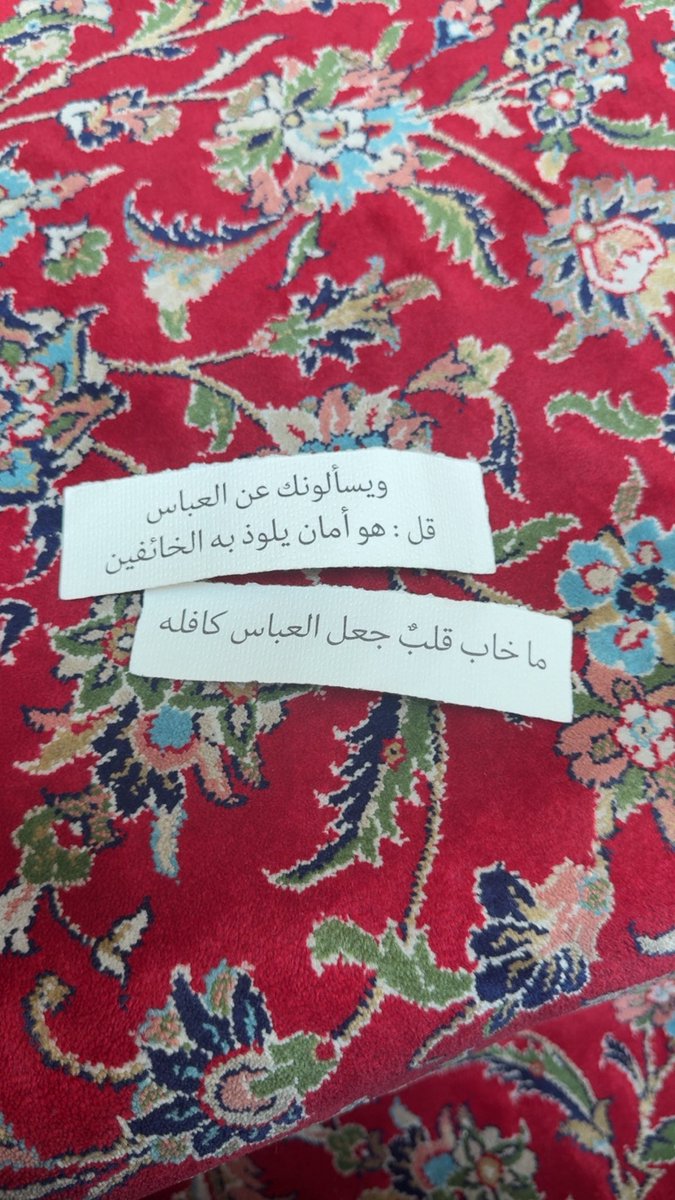 ويسألونك عن العباس
قل : هو أمان يلوذ به الخائفين
ما خاب قلبٌ جعل العباس كافله